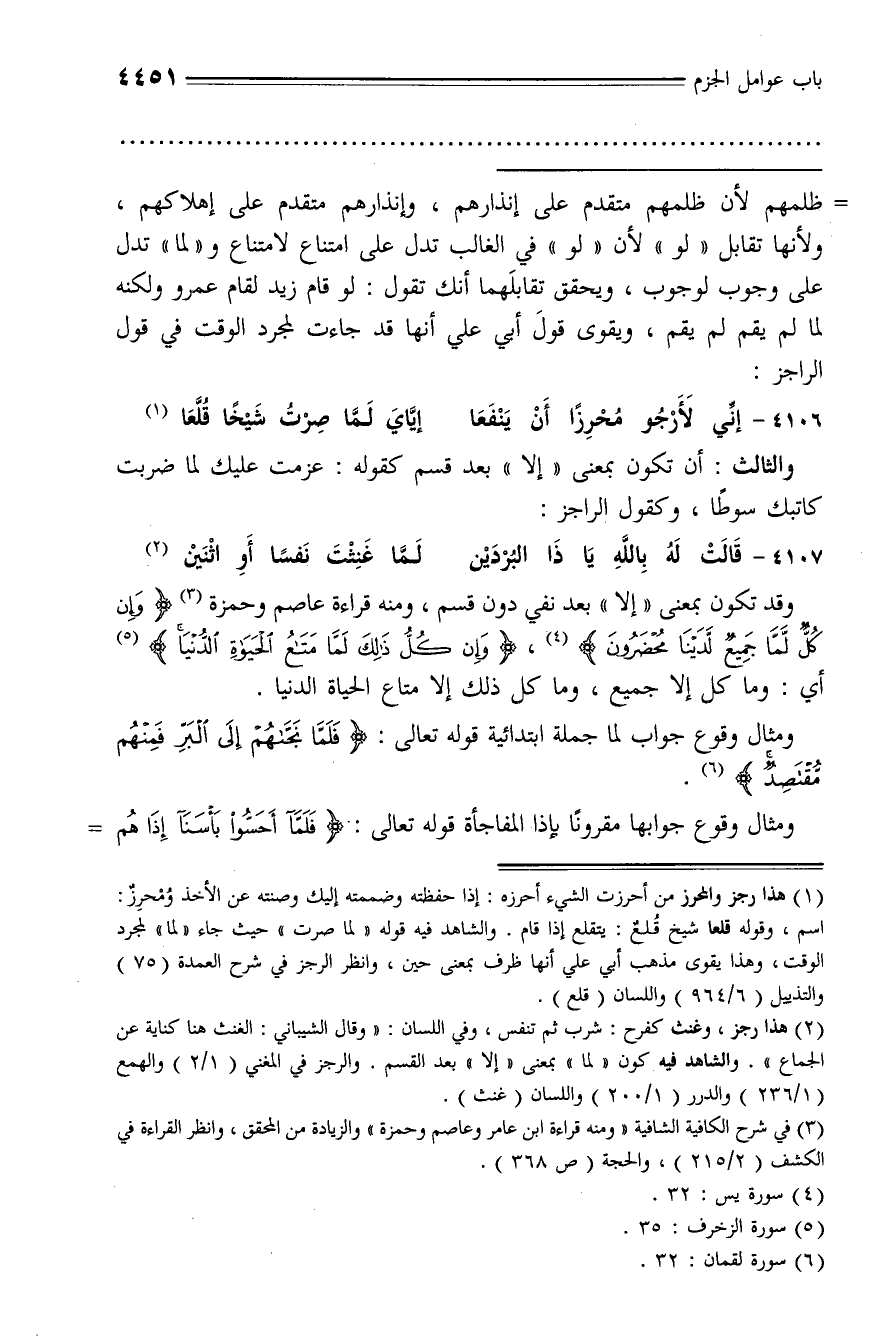 باب عوامل الجزم ٤٤٥١
= ظلمهم لأن ظلمهم متقدم على إنذارهم ، وإنذارهم متقدم على إهلاكهم ،
ولأنها تقابل « لو » لأن « لو » في الغالب تدل على امتناع لامتناع و« لما » تدل
على وجوب لوجوب ، ويحقق تقابلَهما أنك تقول : لو قام زيد لقام عمرو ولكنه
لما لم يقم لم يقم ، ويقوى قولَ أبي علي أنها قد جاءت لمجرد الوقت في قول
الراجز :
٤١٠٦ - إنِّي لَأَرْجُو مُحْرِزًا أَنْ يَنْفَعَا إيَّايَ لَـمَّا صِرْتُ شَيْخًا قُلَّعَا (١)
والثالث : أن تكون بمعنى « إلا » بعد قسم كقوله : عزمت عليك لما ضربت
كاتبك سوطًا ، وكقول الراجز :
٤١٠٧ - قَالَتْ لَهُ بِاللَّهِ يَا ذَا البُرْدَيْن لَـمَّا غَنِثْتَ نَفسًا أَوِ اثْنَيْنْ (٢)
وقد تكون بمعنى « إلا » بعد نفي دون قسم ، ومنه قراءة عاصم وحمزة (٣) ﴿ وَإِن
كُلٌّ لَّمَّا جَمِيعٌ لَّدَيْنَا مُحْضَرُونَ ﴾ (٤) ، ﴿ وَإِن كُلُّ ذَٰلِكَ لَمَّا مَتَٰعُ ٱلْحَيَوٰةِ ٱلدُّنْيَاۚ ﴾ (٥)
أي : وما كل إلا جميع ، وما كل ذلك إلا متاع الحياة الدنيا .
ومثال وقوع جواب لما جملة ابتدائية قوله تعالى : ﴿ فَلَمَّا نَجَّىٰهُمْ إِلَى ٱلْبَرِّ فَمِنْهُم
مُّقْتَصِدٌۚ ﴾ (٦) .
ومثال وقوع جوابها مقرونًا بإذا المفاجأة قوله تعالى : ﴿ فَلَمَّآ أَحَسُّوا۟ بَأْسَنَآ إِذَا هُم =
(١) هذا رجز والمحرز من أحرزت الشيء أحرزه : إذا حفظته وضممته إليك وصنته عن الأخذ وُمْحرِزٌ :
اسم ، وقوله قلعا شيخ قُـلـعٌ : يتقلع إذا قام . والشاهد فيه قوله « لما صرت » حيث جاء « لما » لمجرد
الوقت ، وهذا يقوى مذهب أبي علي أنها ظرف بمعنى حين ، وانظر الرجز في شرح العمدة ( ٧٥ )
والتذييل ( ٩٦٤/٦ ) واللسان ( قلع ) .
(٢) هذا رجز ، وغنث كفرح : شرب ثم تنفس ، وفي اللسان : « وقال الشيباني : الغنث هنا كناية عن
الجماع » . والشاهد فيه كون « لما » بمعنى « إلا » بعد القسم . والرجز في المغني ( ٢/١ ) والهمع
( ٢٣٦/١ ) والدرر ( ٢٠٠/١ ) واللسان ( غنث ) .
(٣) في شرح الكافية الشافية « ومنه قراءة ابن عامر وعاصم وحمزة » والزيادة من المحقق ، وانظر القراءة في
الكشف ( ٢١٥/٢ ) ، والحجة ( ص ٣٦٨ ) .
(٤) سورة يس : ٣٢ .
(٥) سورة الزخرف : ٣٥ .
(٦) سورة لقمان : ٣٢ .